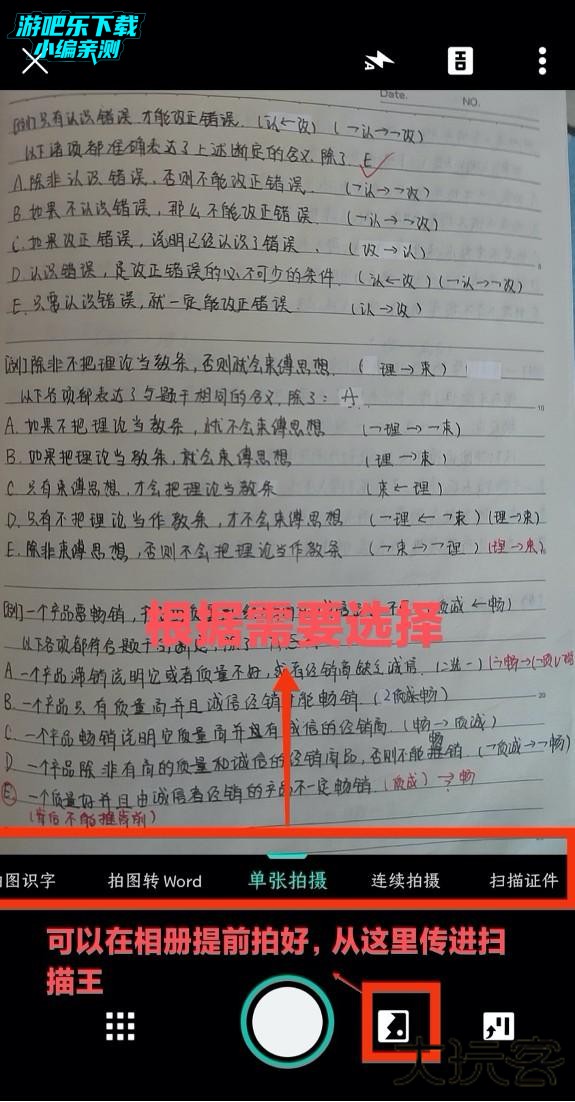 游吧乐下载
小编亲测
A
HD
Date.
NO.
[例]只有认识错误,才能改正错误. (认←改) (¬认→¬改)
以下诸项都准确表达了上述断定的含义,除了 E
A.除非认识错误,否则不能改正错误. (¬认→¬改)
B.如果不认识错误,那么不能改正错误 (¬认→¬改)
C.如果改正错误,说明已经认识了错误. (改→认)
D.认识错误,是改正错误的必不可少的条件. (认←改) (¬认→¬改)
E.只要认识错误,就一定能改正错误. (认→改)
[例]除非不把理论当教条,否则就会束缚思想. ( 理→束)
以下各项都表达了与题干相同的含义,除了: A
A.如果不把理论当教条,就不会束缚思想 (¬理→¬束)
B.如果把理论当教条,就会束缚思想 (理→束)
C.只有束缚思想,才会把理论当教条 (束←理)
D.只有不把理论当作教条,才不会束缚思想 (¬理←¬束) (理→束)
E.除非束缚思想,否则不会把理论当作教条 (¬束→¬理) (理→束)
10
[例]一个产品要畅销, 质诚←畅)
根据需要选择
以下各项都符合题干
A.一个产品滞销说明它或者质量不好,或者经销商缺乏诚信.
B.一个产品只有质量高并且诚信经销才能畅销.
20
C.一个产品畅销说明它质量高并且有诚信的经销商. (畅→质诚)
D.一个产品除非有高的质量和诚信的经销商品,否则不能畅销. (¬质诚→¬畅)
E.一个质量好并且由诚信者经销的产品不一定畅销.
图识字 拍图转Word 单张拍摄 连续拍摄 扫描证件
可以在相册提前拍好，从这里传进扫
描王
大玩客